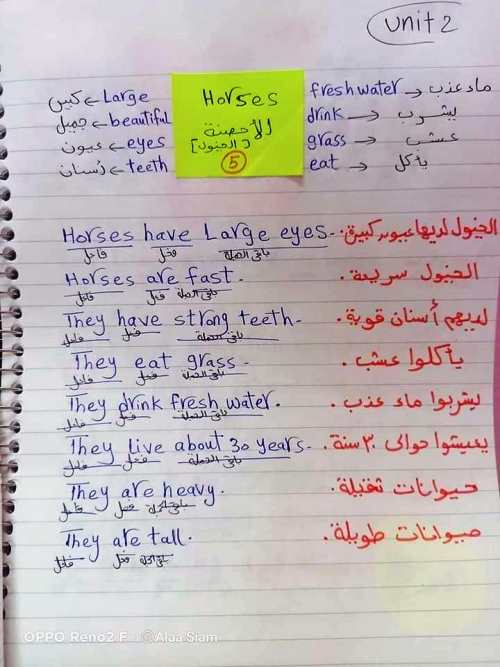 unit 2
Large ← كبير
beautiful ← جميل
eyes ← عيون
teeth ← أسنان
Horses
الأحصنة
[الخيول]
5
fresh water → ماء عذب
drink → يشرب
grass → عشب
eat → يأكل
Horses have Large eyes. الخيول لديها عيون كبيرة.
فاعل فعل باقي الجملة
Horses are fast. الخيول سريعة.
فاعل فعل باقي الجملة
They have strong teeth. لديهم أسنان قوية.
فاعل فعل باقي الجملة
They eat grass. يأكلوا عشب.
فاعل فعل باقي الجملة
They drink fresh water. يشربوا ماء عذب.
فاعل فعل باقي الجملة
They live about 30 years. يعيشوا حوالى ٣٠ سنة.
فاعل فعل باقي الجملة
They are heavy. حيوانات ثقيلة.
فاعل فعل باقي الجملة
They are tall. حيوانات طويلة.
فاعل فعل باقي الجملة
OPPO Reno2 F ©Alaa Siam